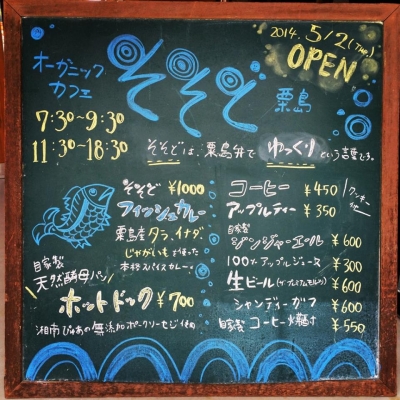 2014. 5/2(Thu.)
OPEN
オーガニック
カフェ
そそど
粟島
7:30~9:30
11:30~18:30
そそどは、粟島弁で ゆっくり という言葉です。
そそど ¥1000
フィッシュカレー
粟島産タラ、イナダ
じゃがいもを使った
本格スパイスカレー。
自家製
天然酵母パン
ホットドック ¥700
湘南ぴゅあの無添加ポークソーセージ使用
コーヒー ¥450
クッキー付
アップルティー ¥350
自家製
ジンジャーエール ¥600
100%アップルジュース ¥300
生ビール(ザ・プレミアムモルツ) ¥600
シャンディーガフ ¥600
自家製 コーヒー焼酎 ¥550